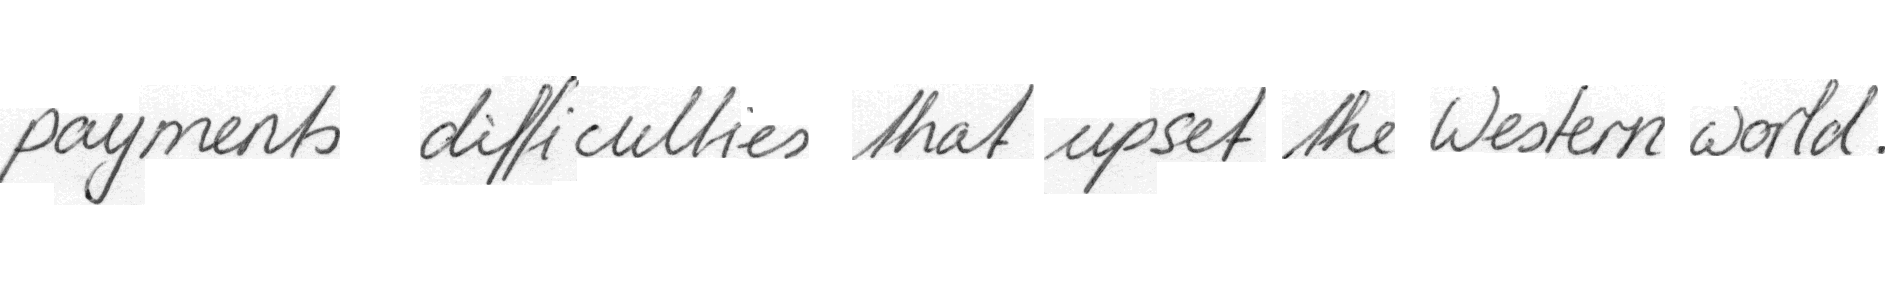 payments difficulties that upset the Western world.